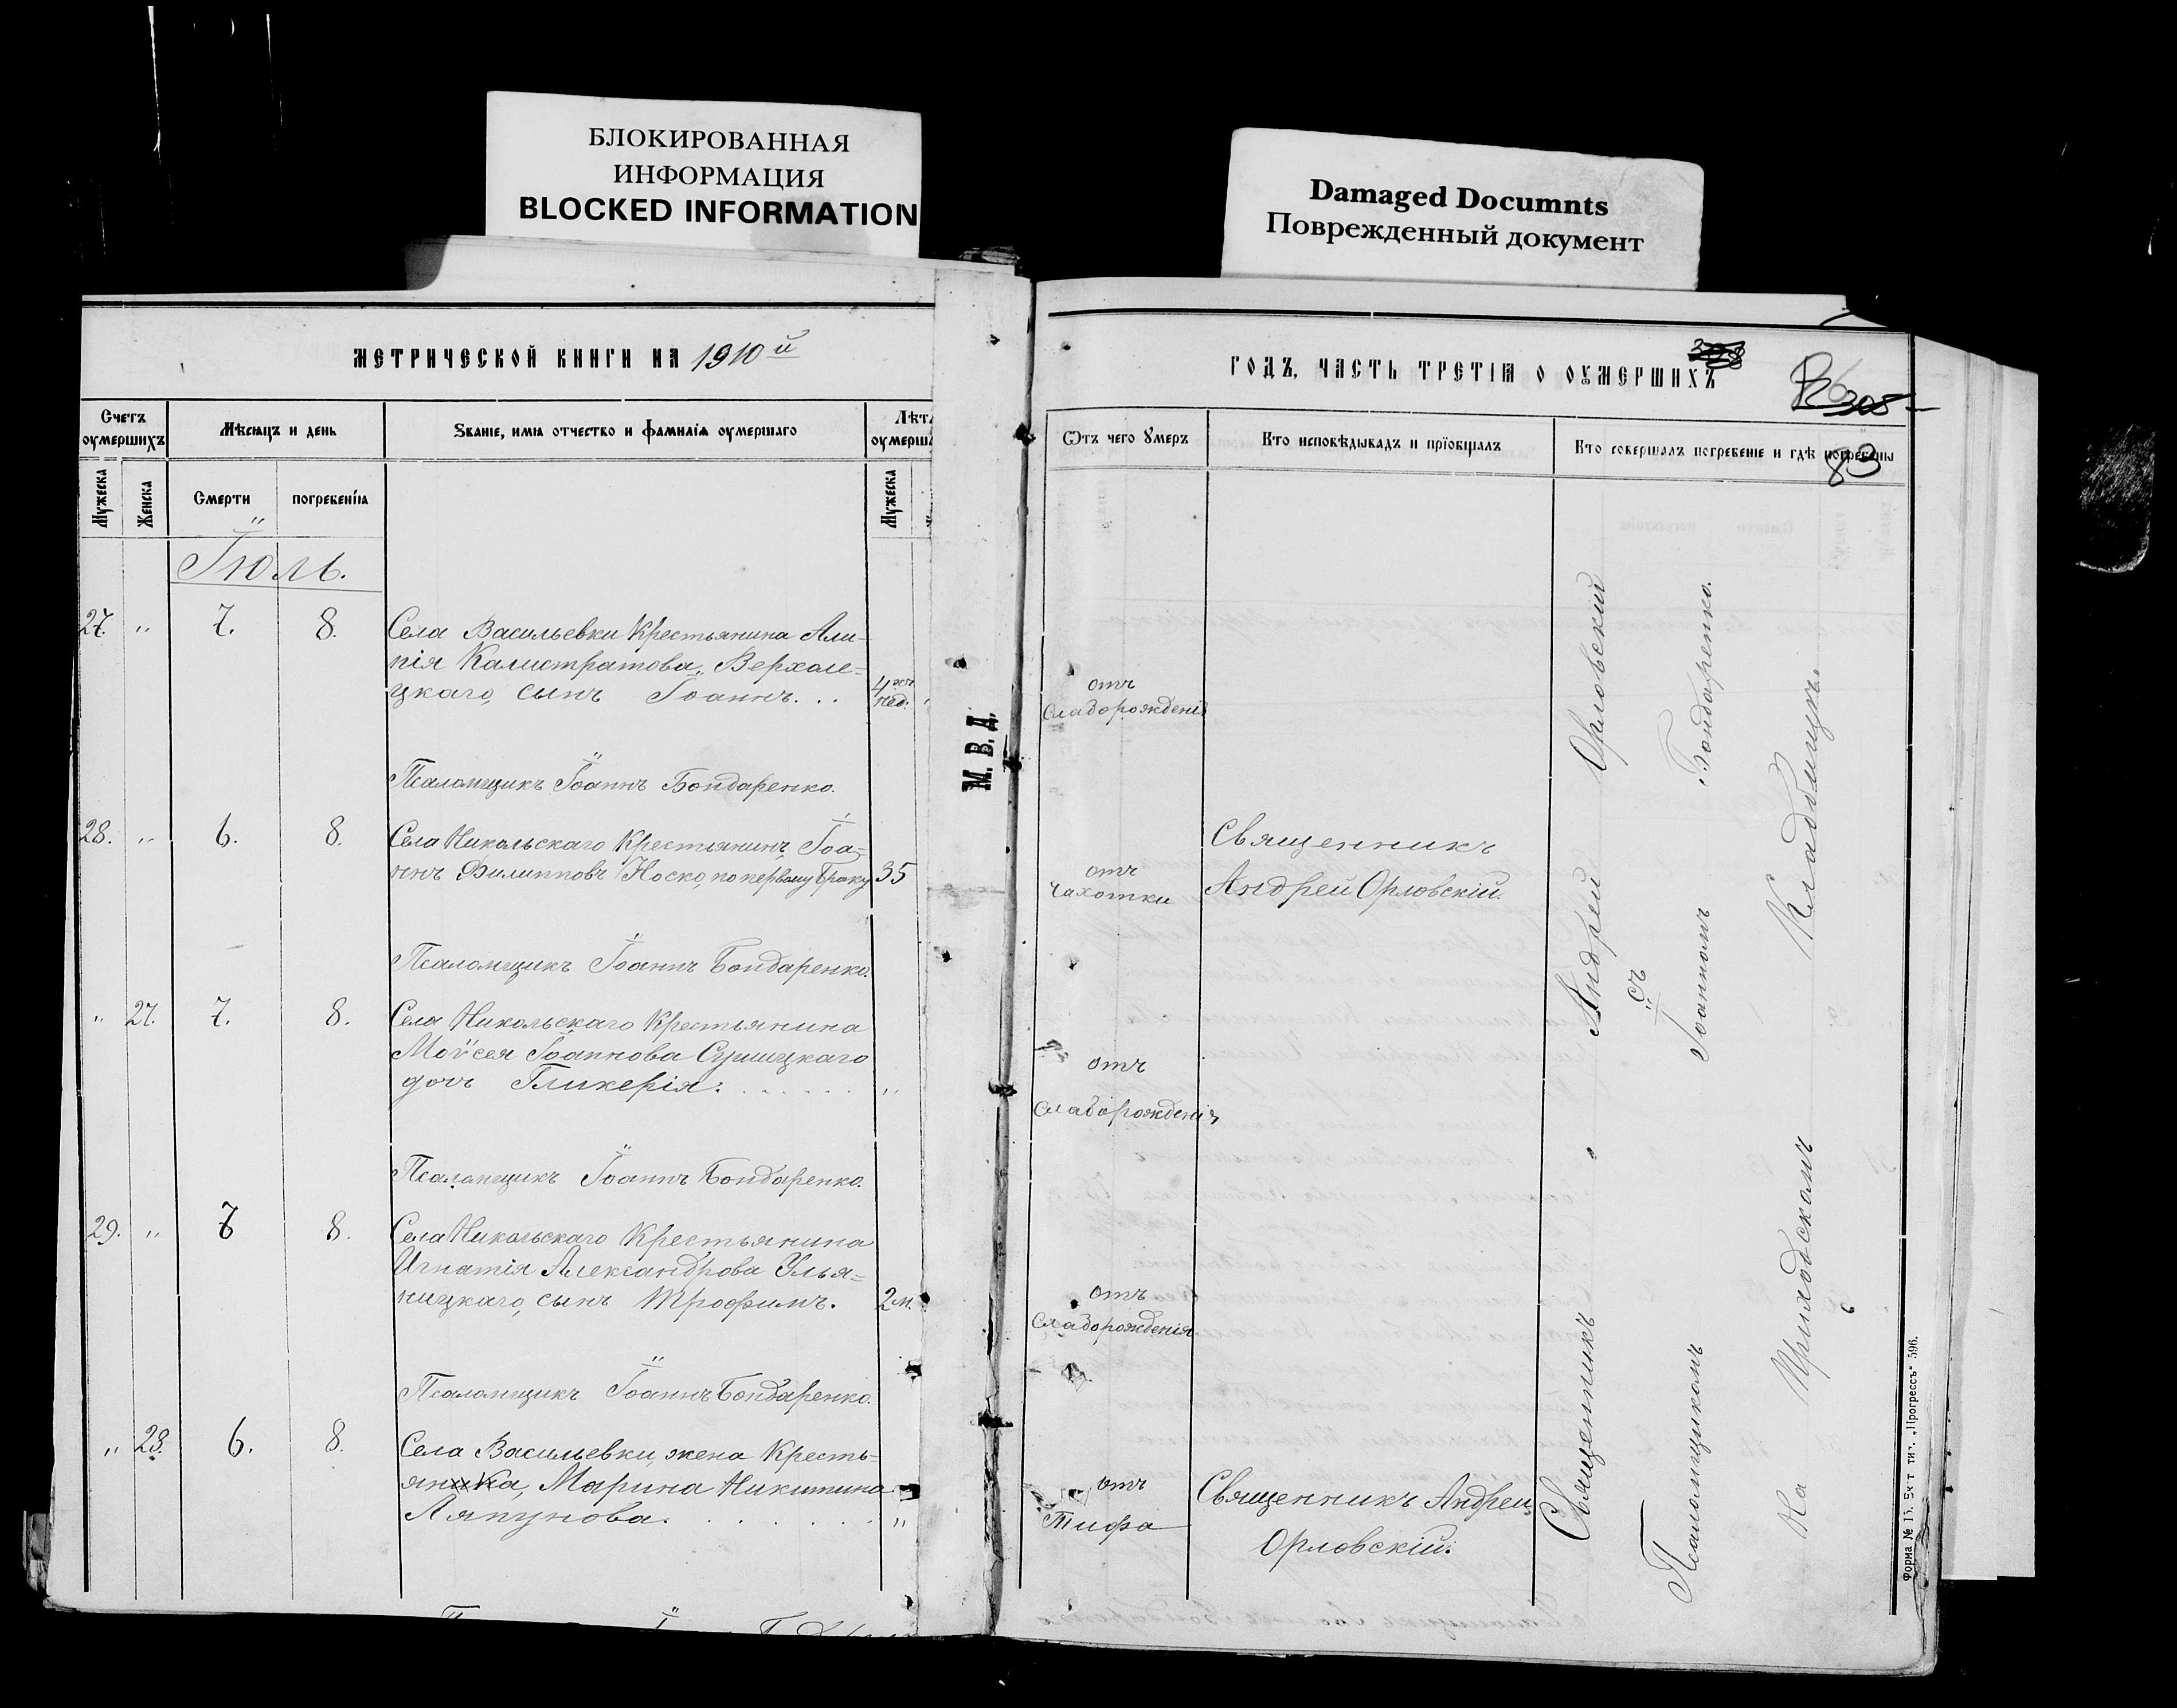 БЛОКИРОВАННАЯ
ИНФОРМАЦИЯ
BLOCKED INFORMATION
Damaged Documnts
Поврежденный документ
МЕТРИЧЕСКОЙ КНИГИ НА 1910й
Счетъ оумершихъ
Мѣсяцъ и день
Званіе, имя отчество и фамилія оумершаго
Лѣт
оумерш
Мужеска
Женска
Смерти
погребенія
Мужеска
Іюль.
27. „ 7. 8. Села Васильевки Крестьянина Али-
пія Калистратова Верхоле-
цкаго, сынъ Іоаннъ. . . 4хъ нед.
Псаломщикъ Іоаннъ Бондаренко.
28. „ 6. 8. Села Никольскаго Крестьянинъ Іоа-
ннъ Филипповъ Носко, по первому браку 35
Псаломщикъ Іоаннъ Бондаренко.
„ 27. 7. 8. Села Никольскаго Крестьянина
Моѵсея Іоаннова Сушицкаго
дочь Гликерія: . . . . . . „
Псаломщикъ Іоаннъ Бондаренко.
29. „ 7 8. Села Никольскаго Крестьянина
Игнатія Александрова Улья-
ницкаго, сынъ Трофимъ. 2 м.
Псаломщикъ Іоаннъ Бондаренко.
„ 28. 6. 8. Села Васильевки, жена Кресть-
янина, Марина Никитина
Ляпунова. . . . . . . „
М. В. Д.
ГОДЪ, ЧАСТЬ ТРЕТІЯ О ОУМЕРШИХЪ
305
83
Ѿтъ чего умеръ
Кто исповѣдывалъ и пріобщалъ
Кто совершалъ погребеніе и гдѣ погребены
отъ
слаборожденія
отъ
чахотки
Священникъ
Андрей Орловскій.
отъ
слаборожденія
отъ
слаборожденія
отъ
Тифа
Священникъ Андрей
Орловскій.
Священникъ Андрей Орловскій
съ
Псаломщикомъ Іоанномъ Бондаренко.
На Приходскомъ Кладбищѣ.
Форма № 15. Ек-т тип. „Прогрессъ" 596.